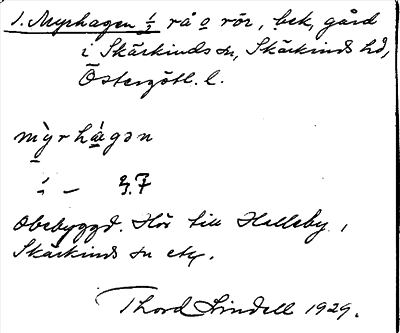 1. Myrhagen ½ rå o rör, bek, gård
i Skärkinds sn, Skärkinds hd,
Östergötl. l.
mỳrhàgən
Obebyggd. Hör till Helleby,
Skärkinds sn etc.
Thord Lindell 1929.